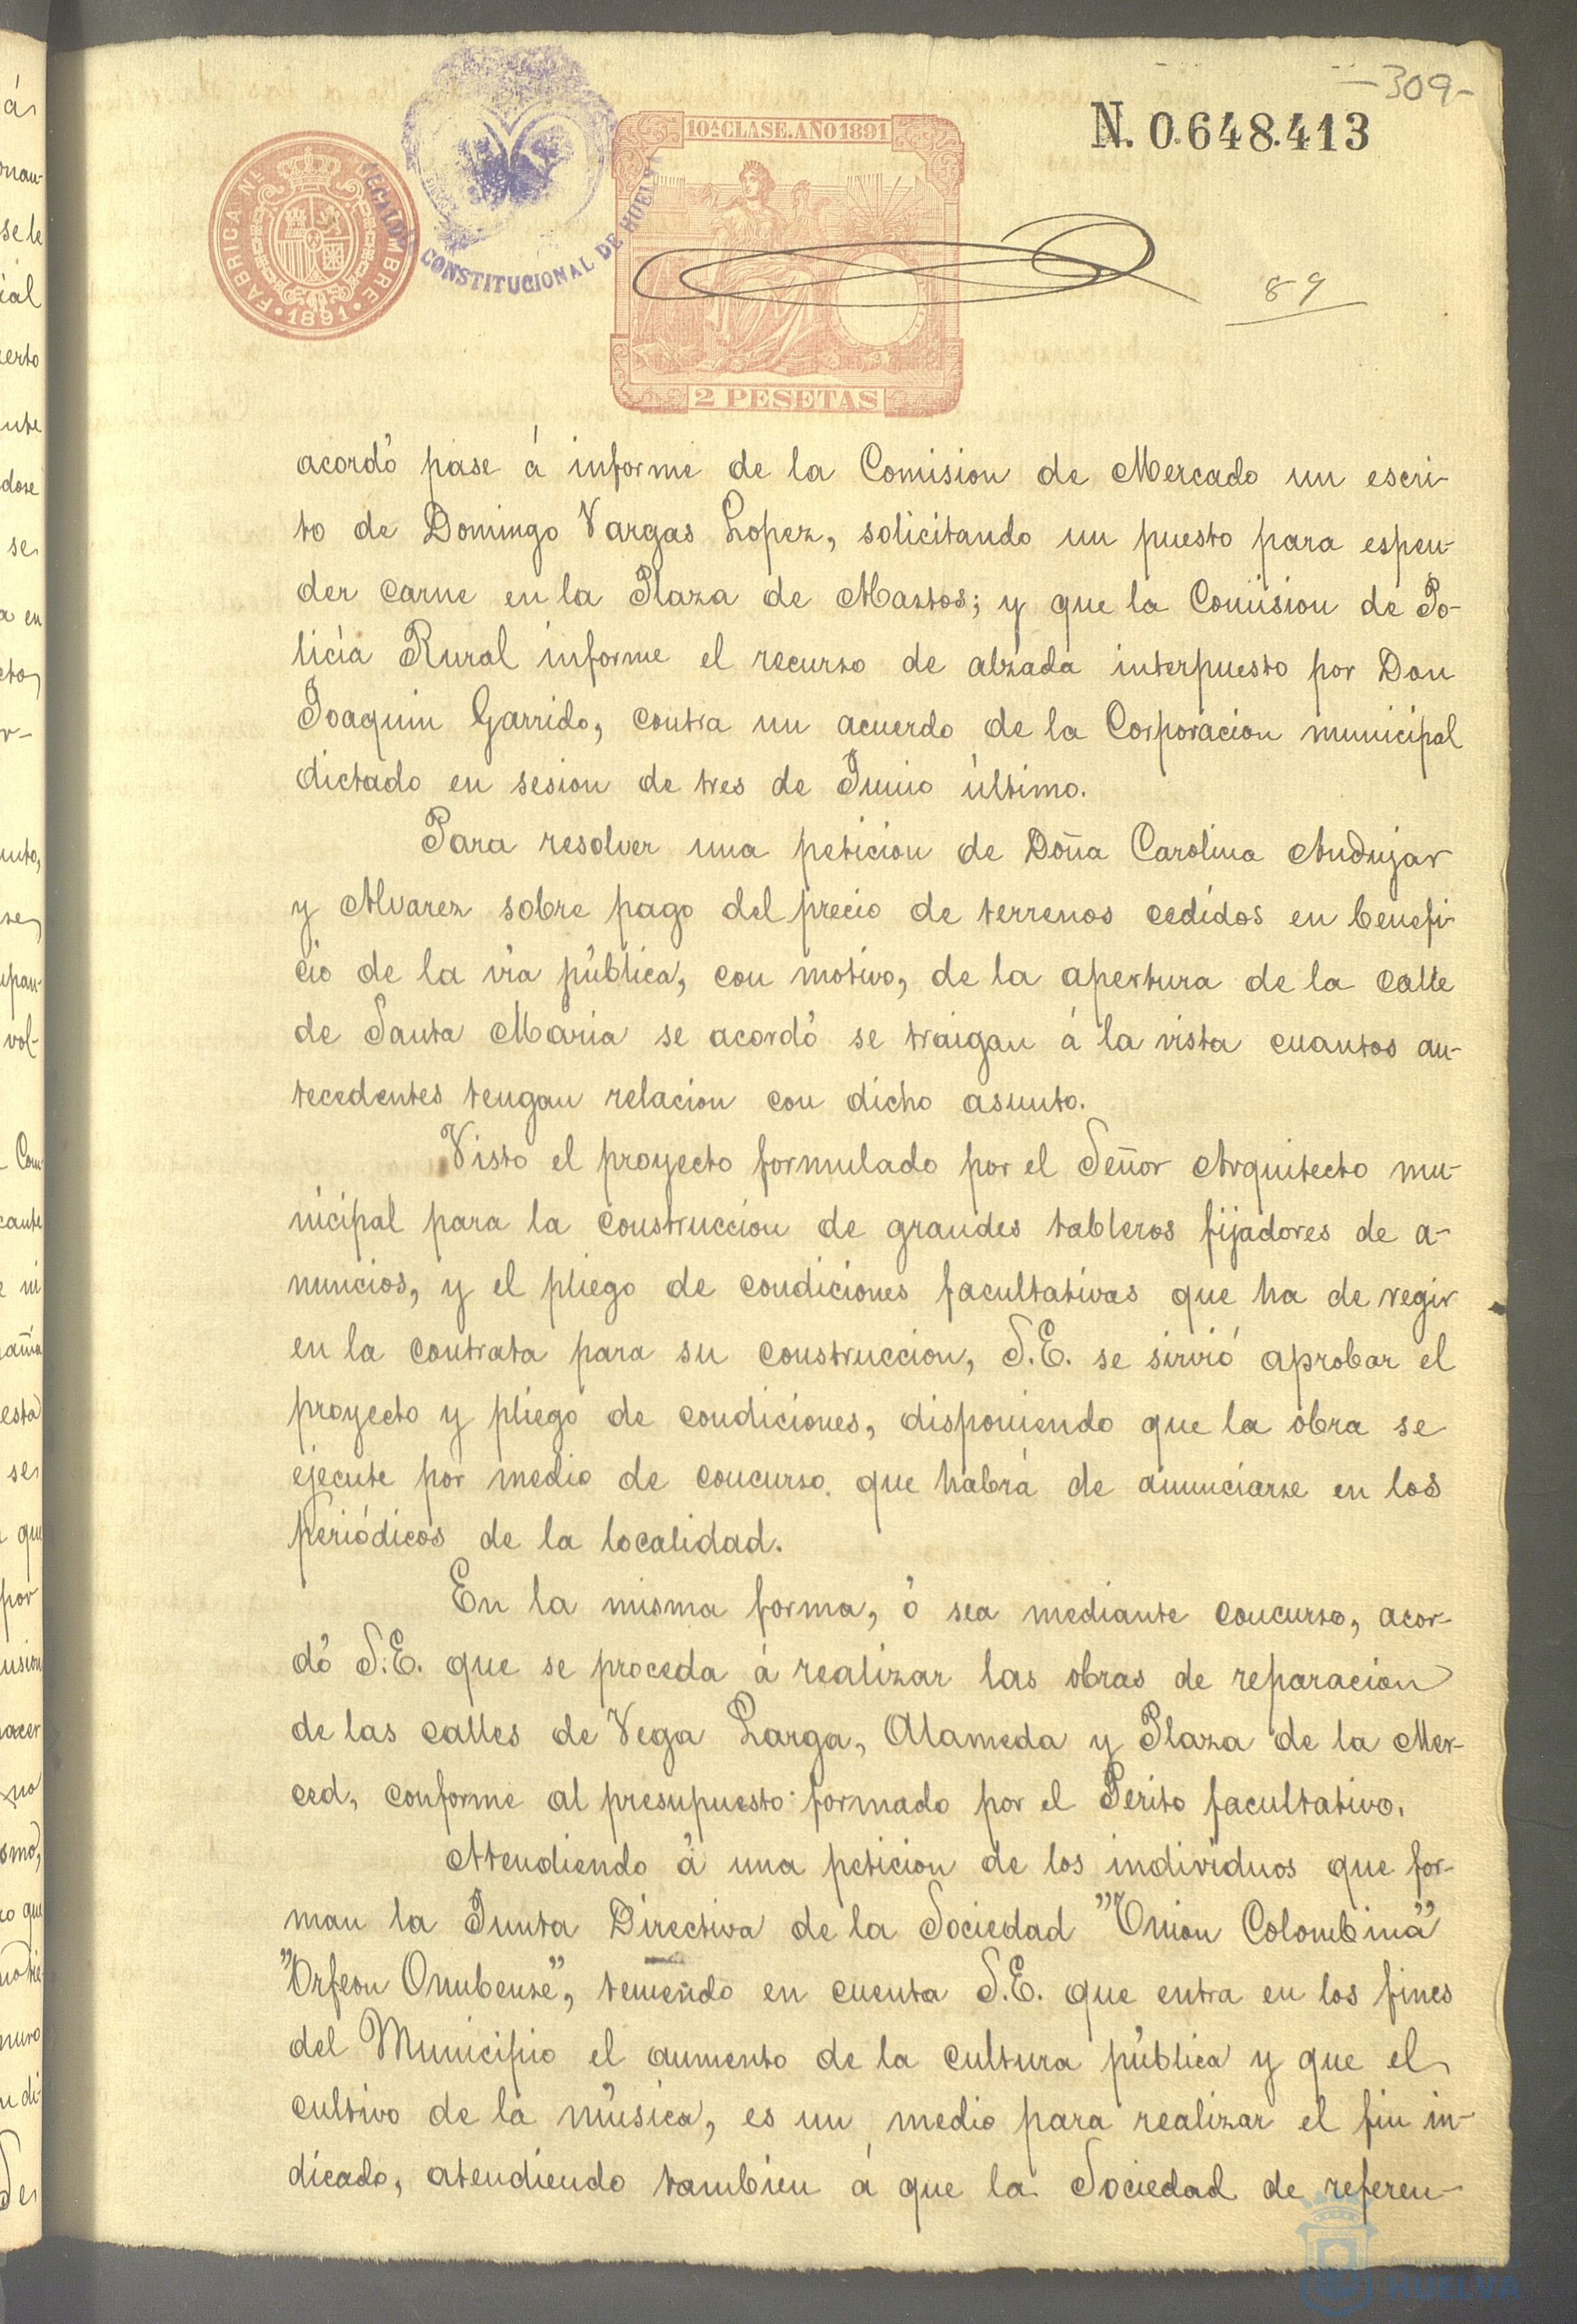 -309-
N. 0.648.413
10ª CLASE. AÑO 1891
FABRICA NL DEL TIMBRE
· 1891 ·
CONSTITUCIONAL DE HUELVA
2 PESETAS
89
acordó pase á informe de la Comision de Mercado un escri-
to de Domingo Vargas Lopez, solicitando un puesto para espen-
der carne en la Plaza de Abastos; y que la Comision de Po-
licía Rural informe el recurso de alzada interpuesto por Don
Joaquin Garrido, contra un acuerdo de la Corporacion municipal
dictado en sesion de tres de Junio último.
Para resolver una peticion de Doña Carolina Andujar
y Alvarez sobre pago del precio de terrenos cedidos en benefi-
cio de la vía pública, con motivo, de la apertura de la calle
de Santa María se acordó se traigan á la vista cuantos an-
tecedentes tengan relacion con dicho asunto.
Visto el proyecto formulado por el Señor Arquitecto mu-
nicipal para la construccion de grandes tableros fijadores de a-
nuncios, y el pliego de condiciones facultativas que ha de regir
en la contrata para su construccion, S.E. se sirvió aprobar el
proyecto y pliego de condiciones, disponiendo que la obra se
ejecute por medio de concurso que habrá de anunciarse en los
periódicos de la localidad.
En la misma forma, ó sea mediante concurso, acor-
dó S.E. que se proceda á realizar las obras de reparacion
de las calles de Vega Larga, Alameda y Plaza de la Mer-
ced, conforme al presupuesto formado por el Perito facultativo.
Atendiendo á una peticion de los individuos que for-
man la Junta Directiva de la Sociedad "Union Colombina"
"Orfeon Onubense", teniendo en cuenta S.E. que entra en los fines
del Municipio el aumento de la cultura pública y que el
cultivo de la música, es un medio para realizar el fin in-
dicado, atendiendo tambien á que la Sociedad de referen-
HUELVA